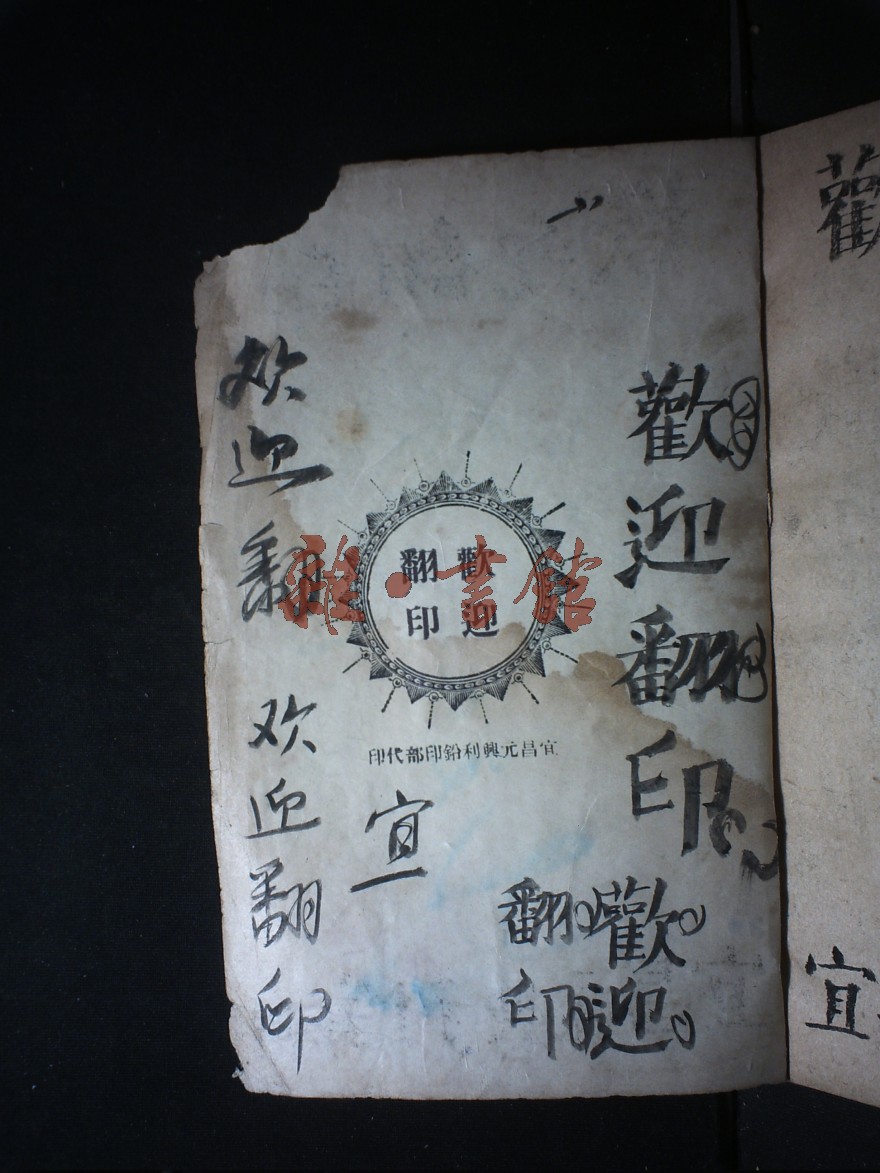 歡
宜
歡迎翻印
歡迎
翻印
歡迎
翻印
宜昌元興利鉛印部代印
宜
欢迎翻
欢迎翻印
雜·書館